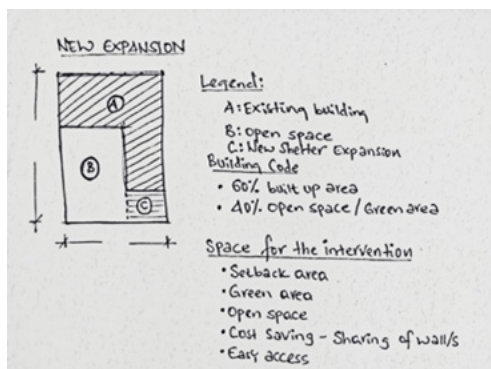 NEW EXPANSION
A
B
C
Legend:
A: Existing building
B: Open space
C: New Shelter Expansion
Building Code
• 60% built up area
• 40% Open space / Green area
Space for the intervention
• Setback area
• Green area
• Open space
• Cost Saving - Sharing of wall/s
• Easy access